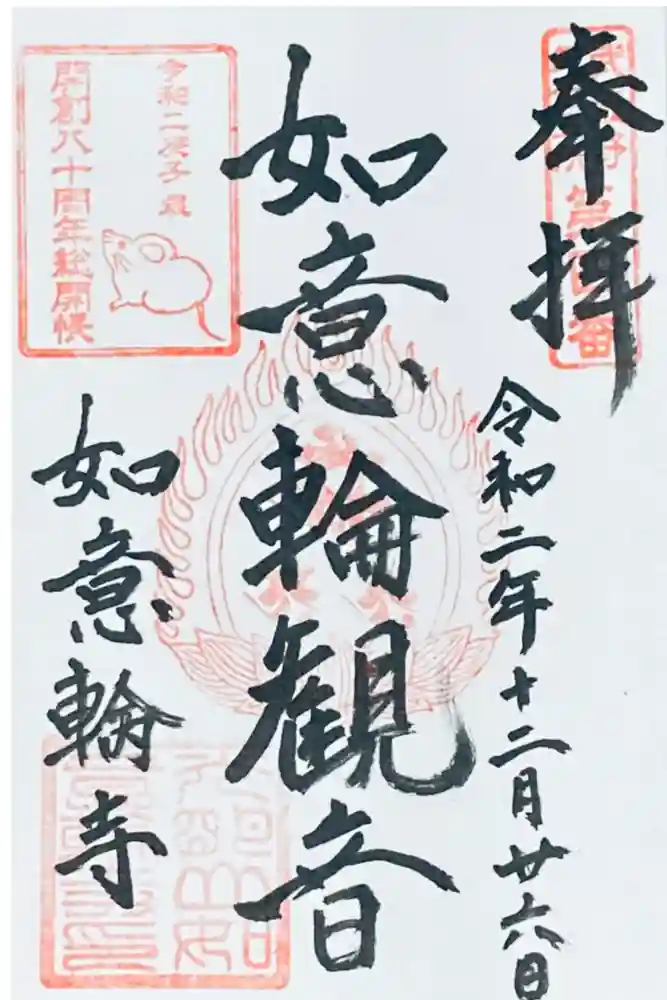 奉拝
令和二年十二月廿六日
如意輪観音
令和二庚子歳
開創八十周年総開帳
如意輪寺